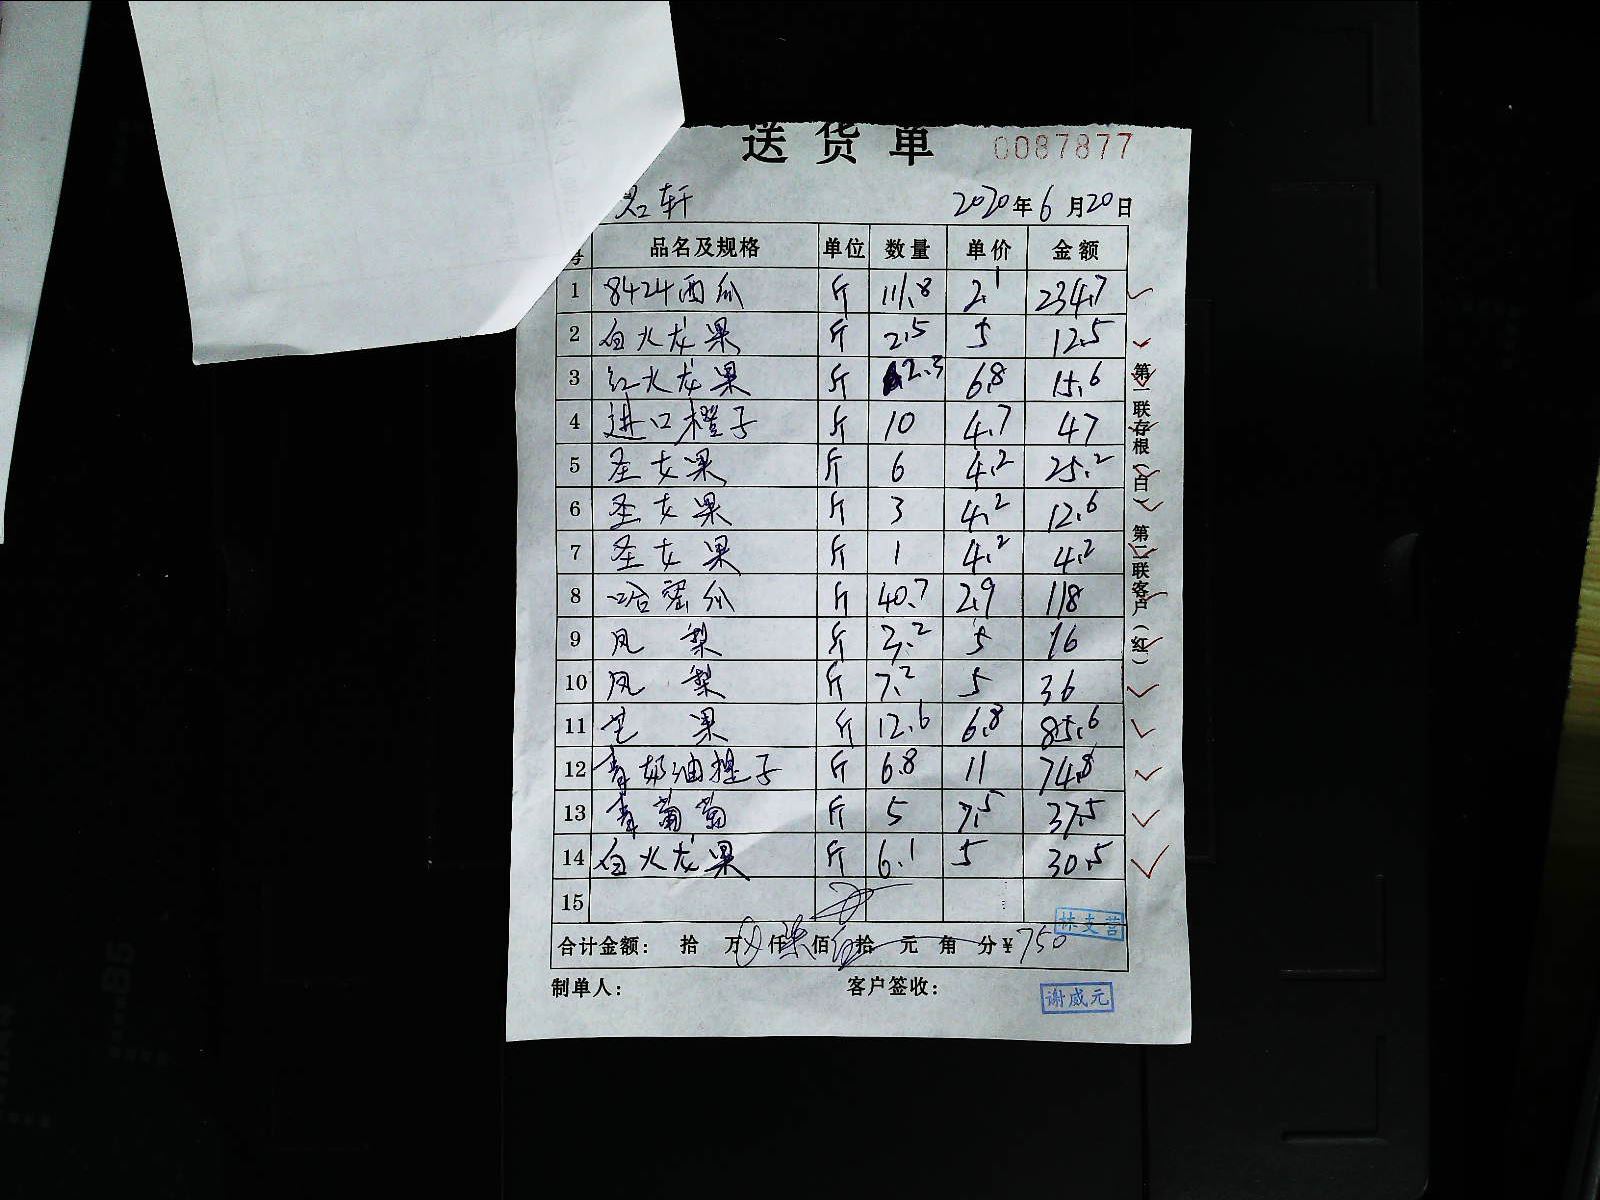 送货单 0087877
君轩 2020年6月20日
号 品名及规格 单位 数量 单价 金额
1 8424西瓜 斤 111.8 2.1 234.7
2 白火龙果 斤 2.5 5 12.5
3 红火龙果 斤 2.3 6.8 15.6
4 进口橙子 斤 10 4.7 47
5 圣女果 斤 6 4.2 25.2
6 圣女果 斤 3 4.2 12.6
7 圣女果 斤 1 4.2 4.2
8 哈密瓜 斤 40.7 2.9 118
9 凤梨 斤 3.2 5 16
10 凤梨 斤 7.2 5 36
11 芒果 斤 12.6 6.8 85.6
12 青奶油提子 斤 6.8 11 74.8
13 青葡萄 斤 5 7.5 37.5
14 白火龙果 斤 6.1 5 30.5
15
林支营
合计金额: 拾 万 仟 柒 佰 伍 拾 元 角 分 ¥750
制单人: 客户签收:
谢威元
第一联存根(白) 第二联客户(红)